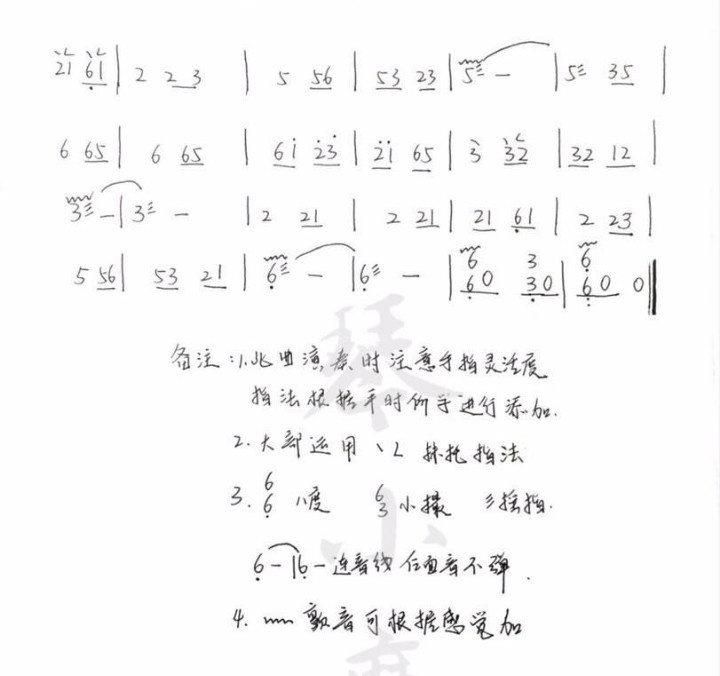 21 61 | 2 2 3 | 5 56 | 53 23 | 5 - | 5 35 |
6 65 | 6 65 | 6i 23 | 2i 65 | 3 32 | 32 12 |
3 - | 3 - | 2 21 | 2 21 | 21 61 | 2 23 |
5 56 | 53 21 | 6 - | 6 - | 6 60 3 30 | 6 60 0 ‖
备注:1.此曲演奏时注意手指灵活度
指法根据平时所学进行添加.
2.大部运用 丶 L 抹托指法
3. 6 6 八度 6 3 小撮 彡摇指.
6 - | 6 - 连音线 后面音不弹.
4. 颤音可根据感觉加
琴
小